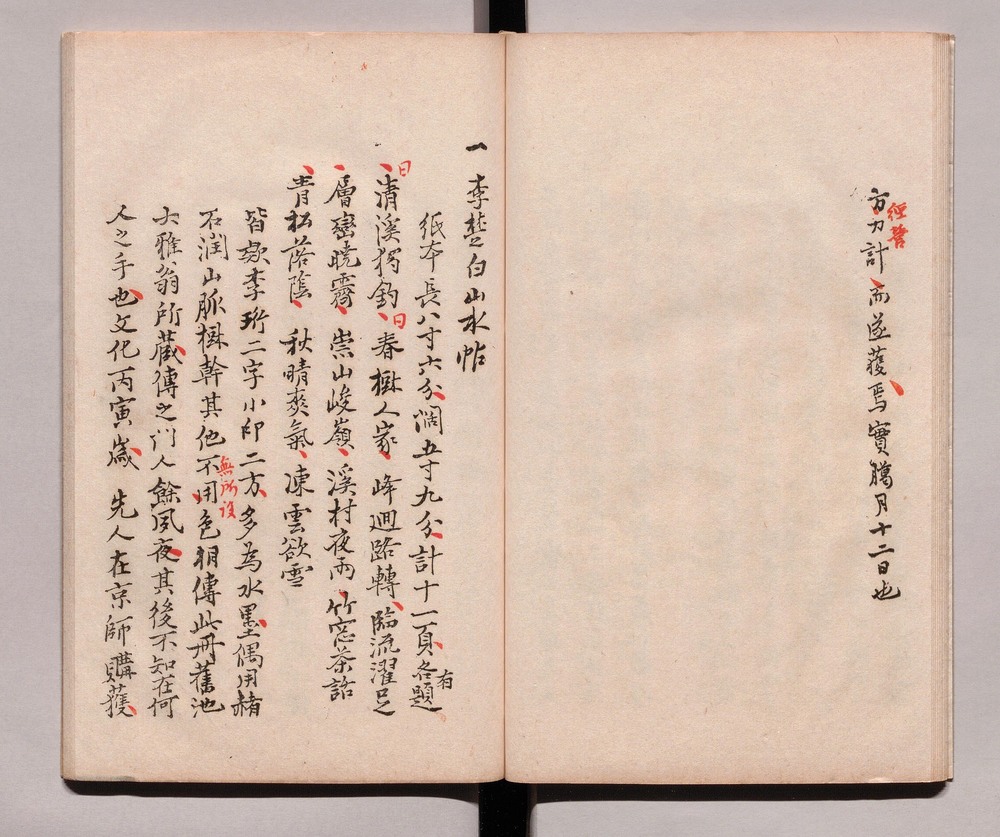 方力計而遂獲焉實臘月十二日也
經營
一李楚白山水帖
紙本長八寸六分濶五寸九分計十一頁各題
有
曰清溪獨釣曰春樹人家峰迴路轉臨流濯足
層巒曉霽崇山峻嶺溪村夜雨竹窓茶話
青松落陰秋晴爽氣凍雲欲雪
皆款李珩二字小印二方多為水墨偶用赭
石潤山脈樹幹其他不用色相傳此册舊池
無所設
大雅翁所藏傳之門人餘夙夜其後不知在何
人之手也文化丙寅歲先人在京師購獲